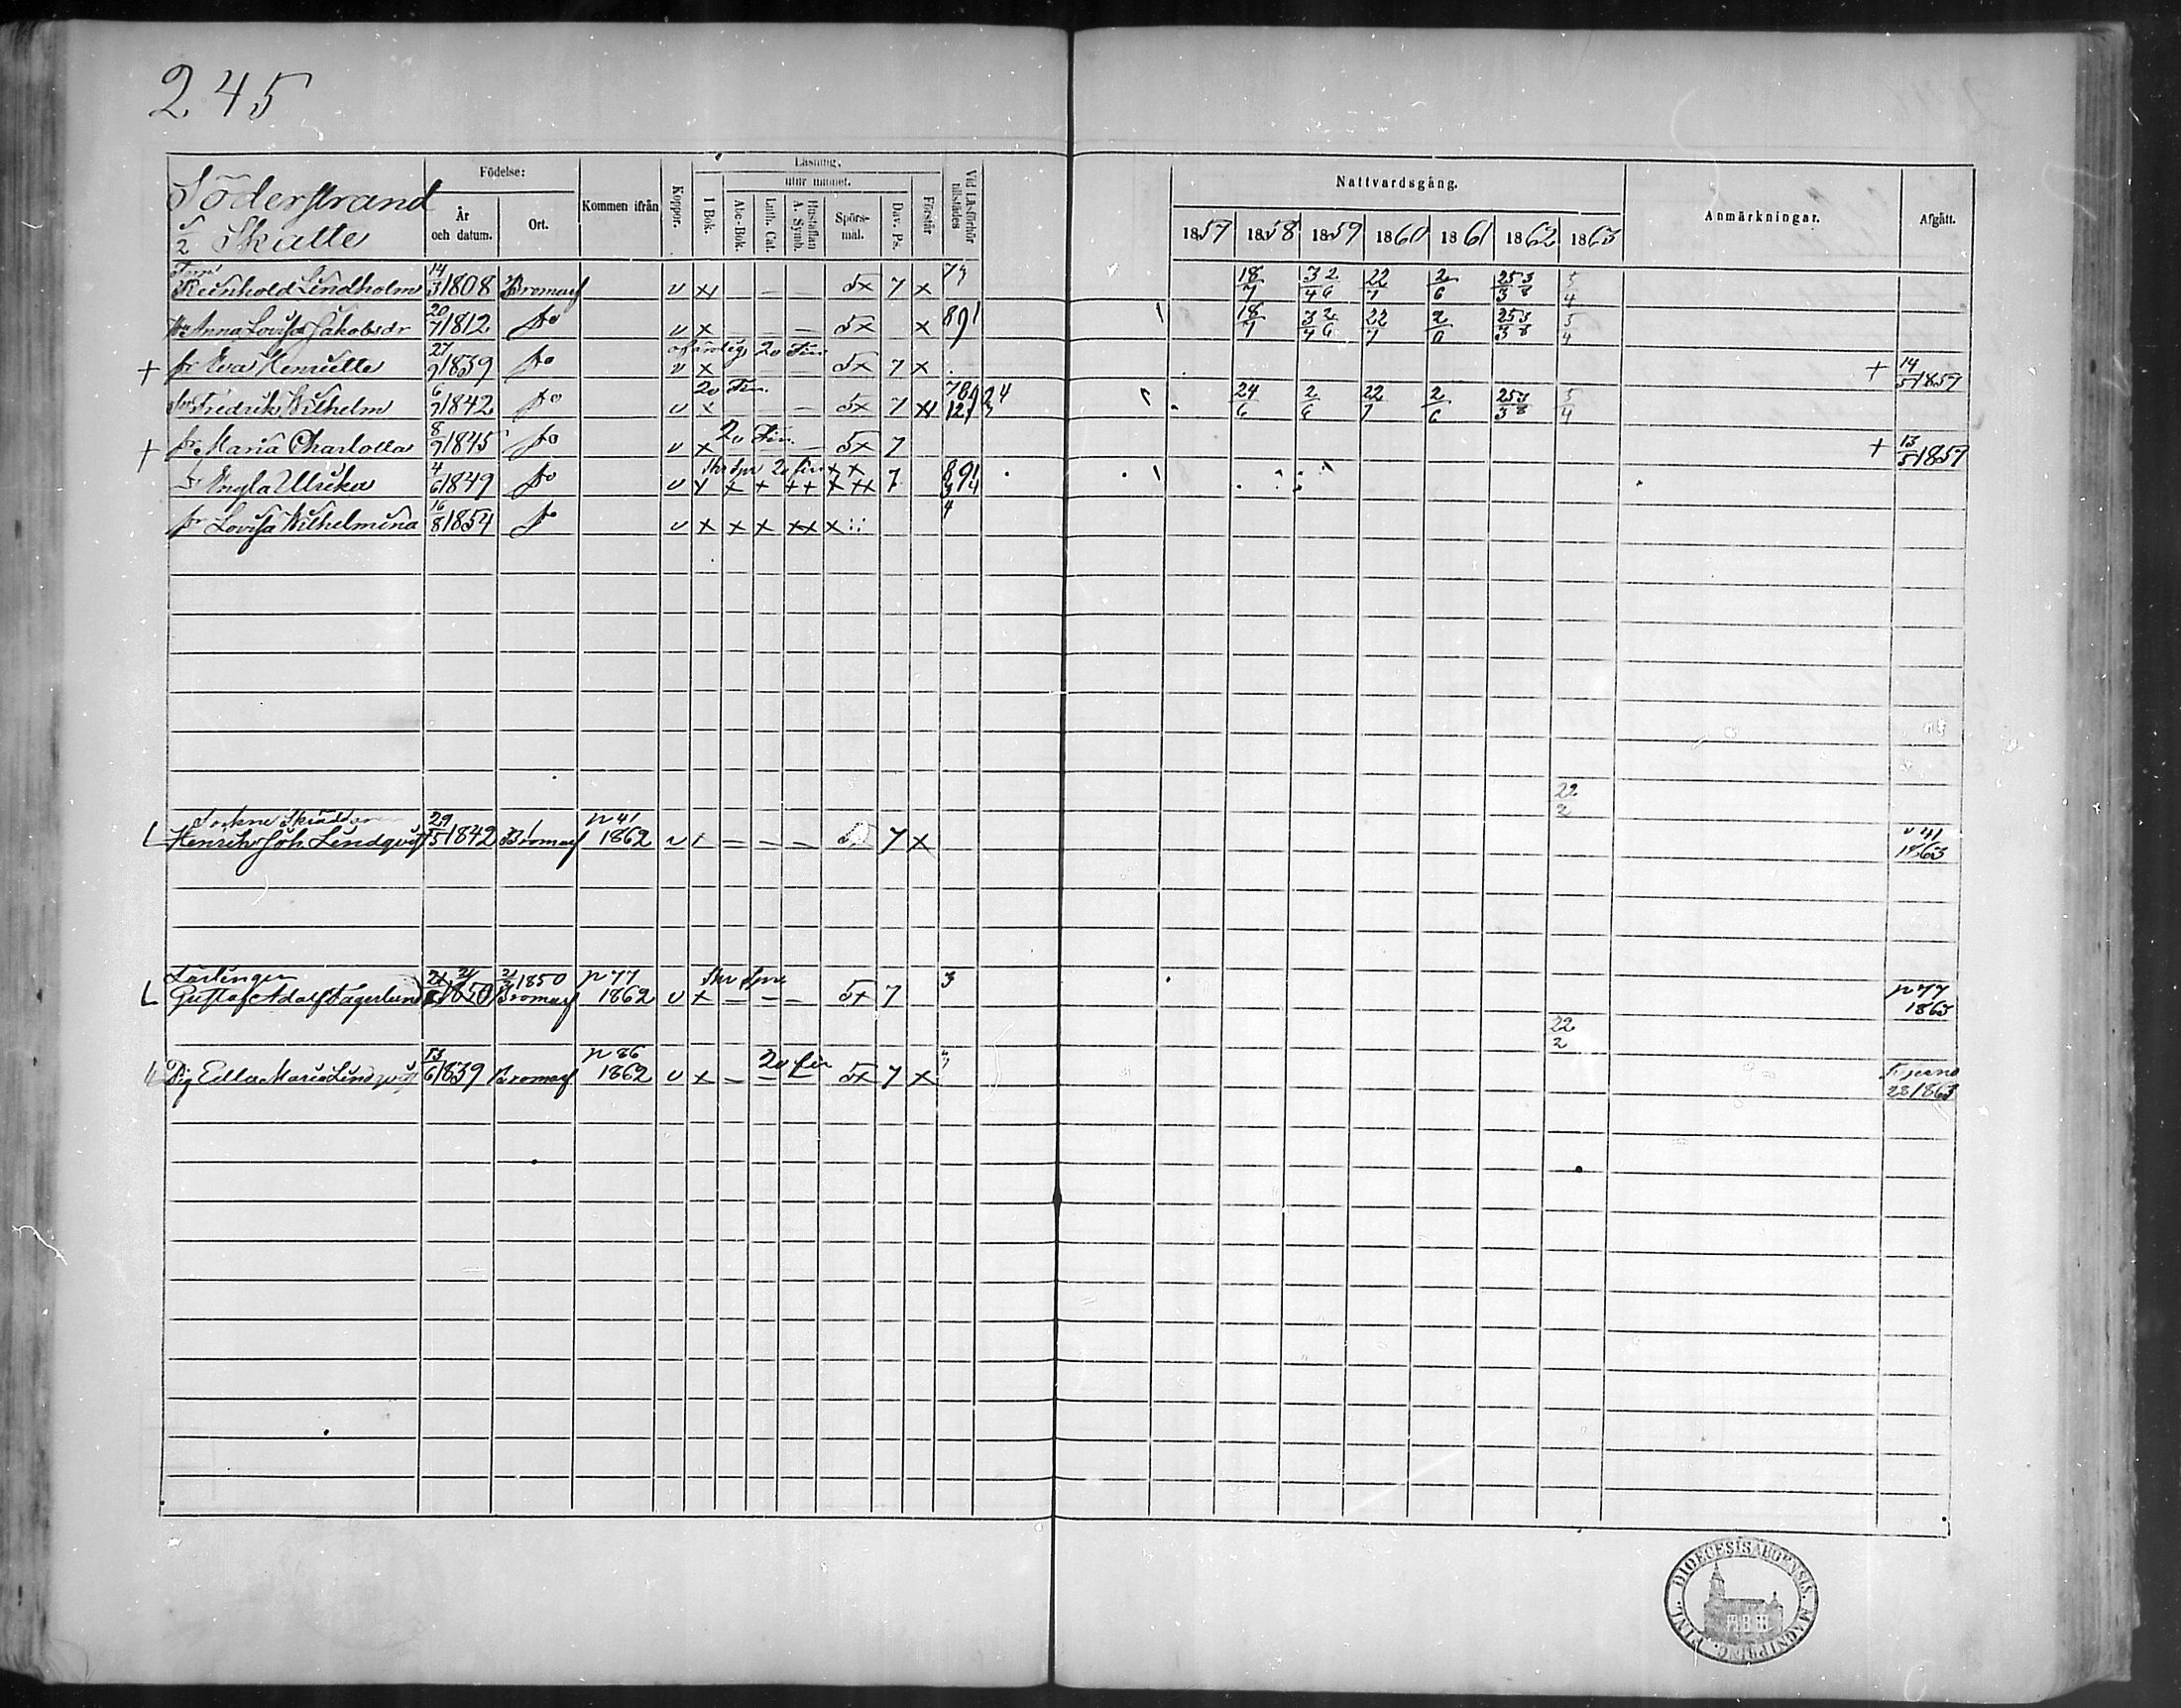 245
Söderstrand
1/2 Skatte
Födelse:
År och datum.
Ort.
Kommen ifrån
Koppor.
Läsning.
utur minnet.
I Bok.
Abc-Bok.
Luth. Cat.
Hustaflan A. Symb.
Spörsmål.
Dav. Ps.
Förstår
Vid Läsförhör tillstädes
Nattvardsgång.
1857 1858 1859 1860 1861 1862 1863
Anmärkningar.
Afgått.
Reinhold Lindholm 14/3 1808 Bromarf v x 5x 7 x 18/7 3/4 2/6 22/7 2/6 25/3 3/8 5/4
Anna Lovisa Jakobsdr 20/7 1812 Do v x 5x x 891 18/7 3/4 2/6 22/7 2/6 25/3 3/8 5/4
+ Eva Henriette 27/9 1839 Do 20 Fin v x 5x 7 x + 14/5 1857
Fredrik Wilhelm 6/7 1842 Do 20 Fin v x 5x 7 24/6 2/6 22/7 2/6 25/3 3/8 5/4
+ dr Maria Charlotta 8/9 1845 Do 20 Fin v x 5x 7 + 13/5 1857
dr Engla Ulrika 4/6 1849 Do Skr Spr 20 fin x x v x x x x x x x x 7 891 34
dr Lovisa Wilhelmina 16/8 1854 Do v x x x x x x 4
22/2
Sockne Skräddaren p 41
L Henrik Joh. Lindqvist 29/5 1842 Bromarf 1862 v 7 x p 41 1863
Lärlingen 21 1850 p 77 Skr Spr 3
L Gustaf Adolf Fagerlund 1850 Bromarf 1862 v x 5x 7 p 77 1863
22/2
p 86 20 fin
Pig Edla Maria Lindqvist 13/6 1839 Bromarf 1862 v x 5x 7 x 1863
DIOECESIS ABOENSIS. MAGNI PRINC. FINL.